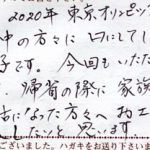 2020年 東京オリンピッ
中の方々に口にしてし
子です。今回もいただ
帰省の際に家族
話になった方々へお土
したいと思います。
ございました。ハガキをお送り下さいま